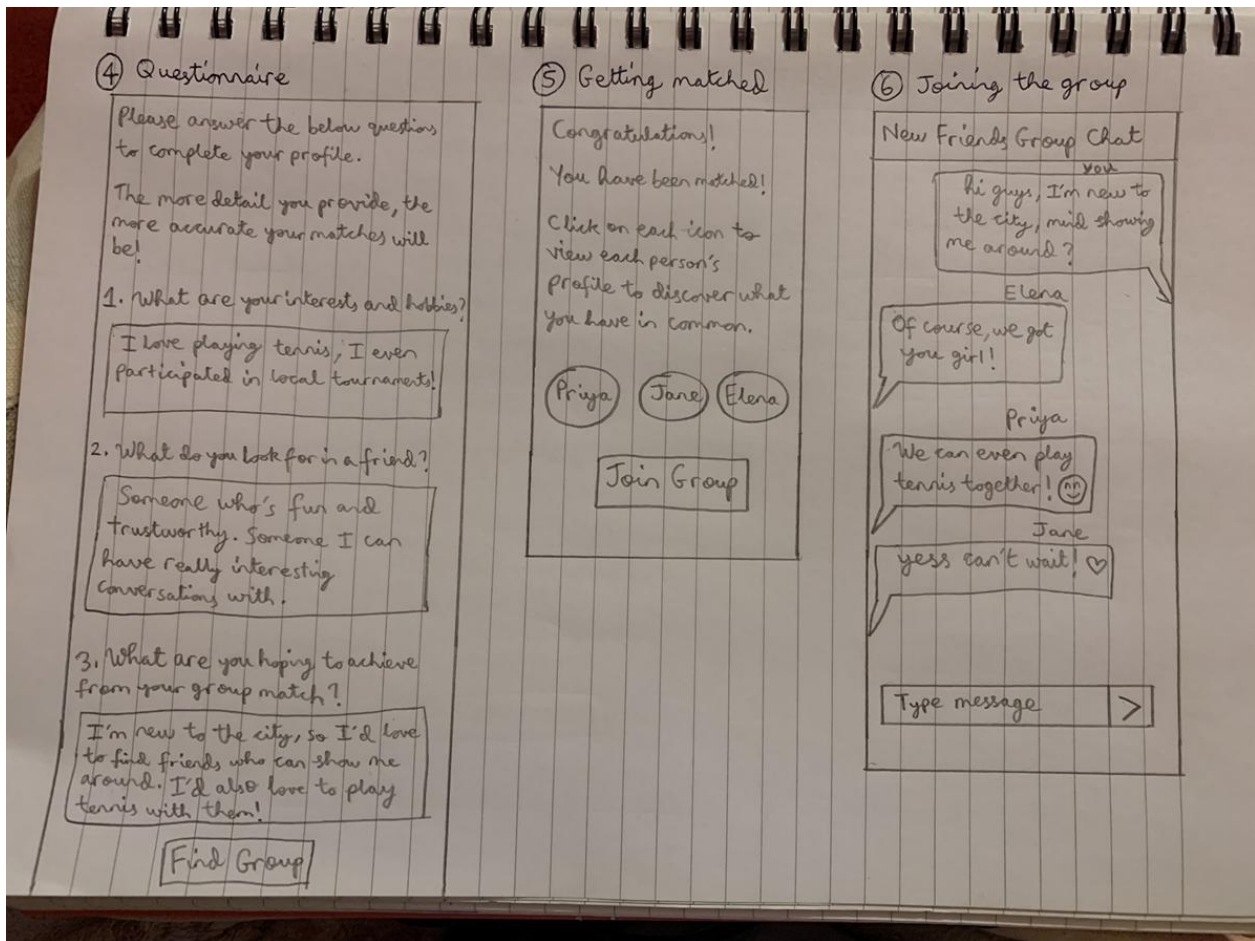 ④ Questionnaire
Please answer the below questions
to complete your profile.
The more detail you provide, the
more accurate your matches will
be!
1. What are your interests and hobbies?
I love playing tennis, I even
participated in local tournaments!
2. What do you look for in a friend?
Someone who's fun and
trustworthy. Someone I can
have really interesting
conversations with.
3. What are you hoping to achieve
from your group match?
I'm new to the city, so I'd love
to find friends who can show me
around. I'd also love to play
tennis with them!
Find Group
⑤ Getting matched
Congratulations!
You have been matched!
Click on each icon to
view each person's
profile to discover what
you have in common.
Priya Jane Elena
Join Group
⑥ Joining the group
New Friends Group Chat
you
hi guys, I'm new to
the city, mind showing
me around?
Elena
Of course, we got
you girl!
Priya
We can even play
tennis together!
Jane
yess can't wait! ♡
Type message >